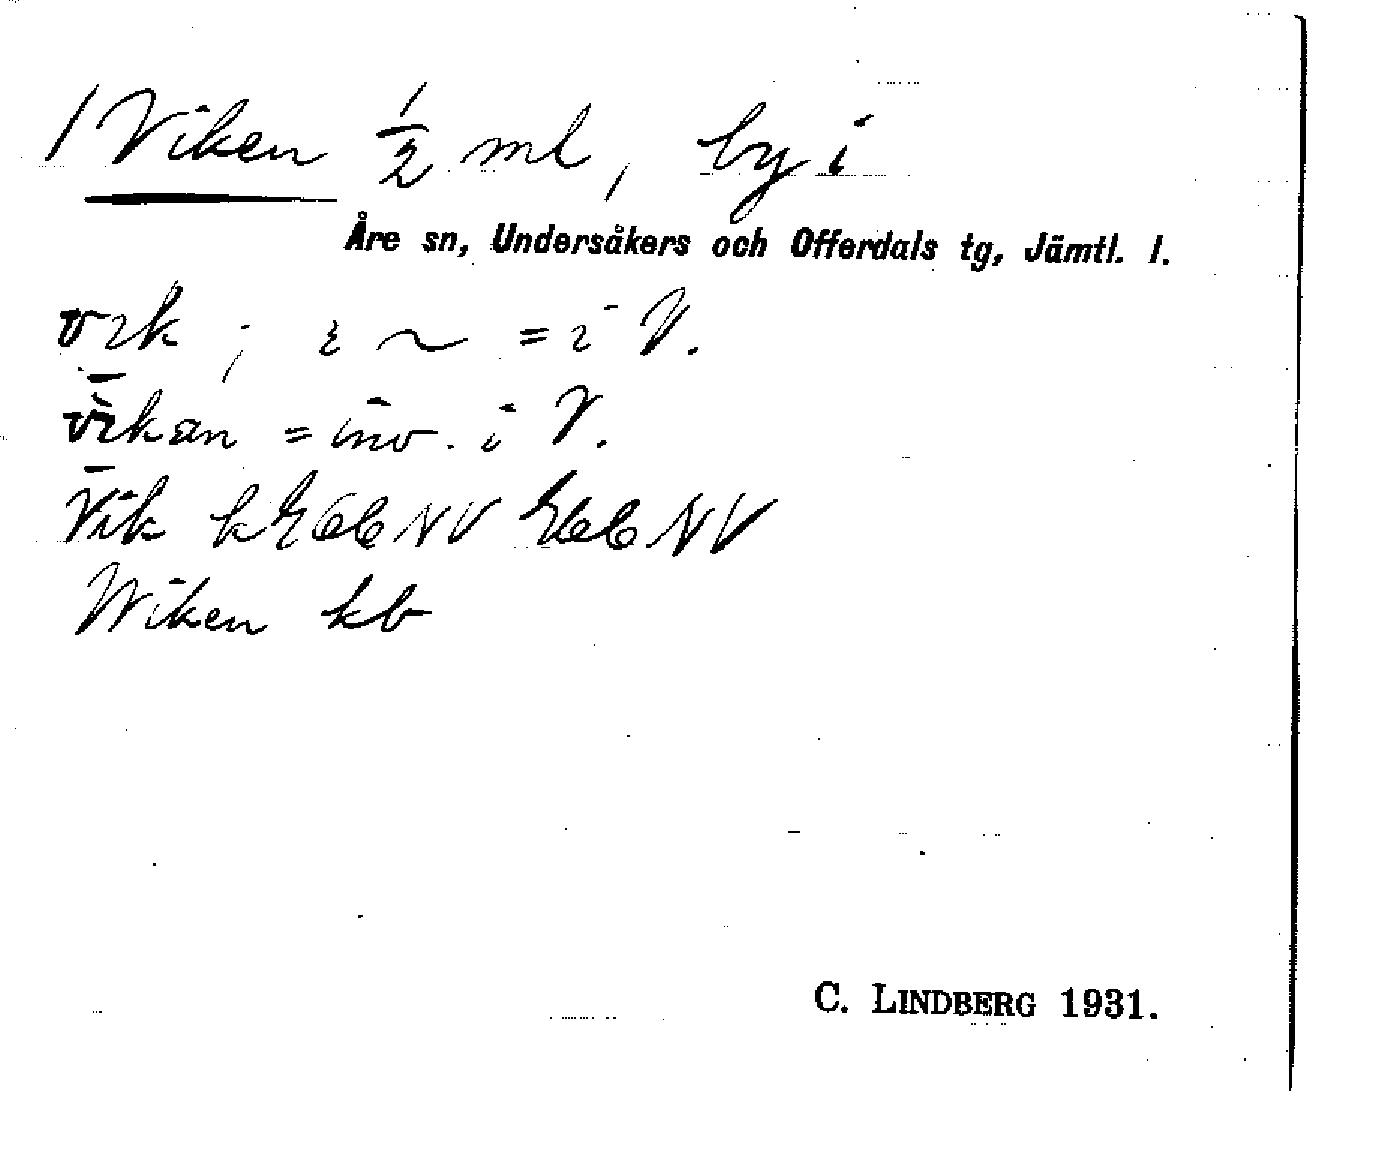 / Viken ½ ml, by i
Åre sn, Undersåkers och Offerdals tg, Jämtl. l.
vīk ; i ~ = i V.
vīkan = inv. i V.
Vik
Wiken kb
C. LINDBERG 1931.